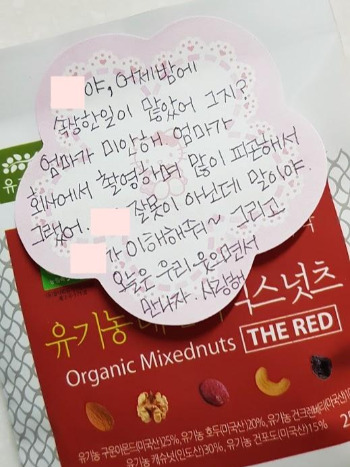 야, 어제밤에
속상한일이 많았어 그지?
엄마가 미안해 엄마가
회사에서 촬영하며 많이 피곤해서
그랬어. 잘못이 아닌데 말이야.
가 이해해줘~ 그리고
오늘은 우리 웃으면서
만나자. 사랑해
유기농
넛츠
Organic Mixednuts THE RED
유기농 구운아몬드(미국산)25%, 유기농 호두(미국산)20%, 유기농 건크랜베리(미국산)
유기농 캐슈넛(인도산)30%, 유기농 건포도(미국산)15%